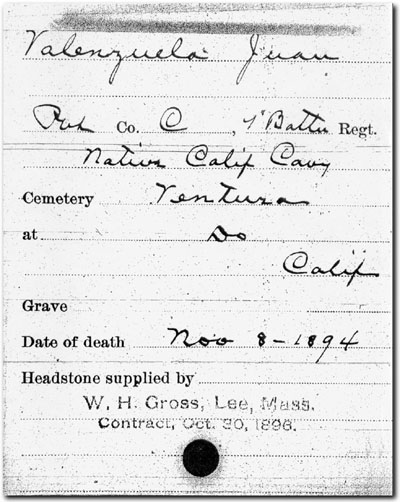 Valenzuela Juan
Pvt Co. C, 1" Battn Regt.
Native Calif Cavy
Cemetery Ventura
at Do
Calif
Grave
Date of death Nov 8-1894
Headstone supplied by
W. H. Gross, Lee, Mass.
Contract, Oct. 30, 1896.